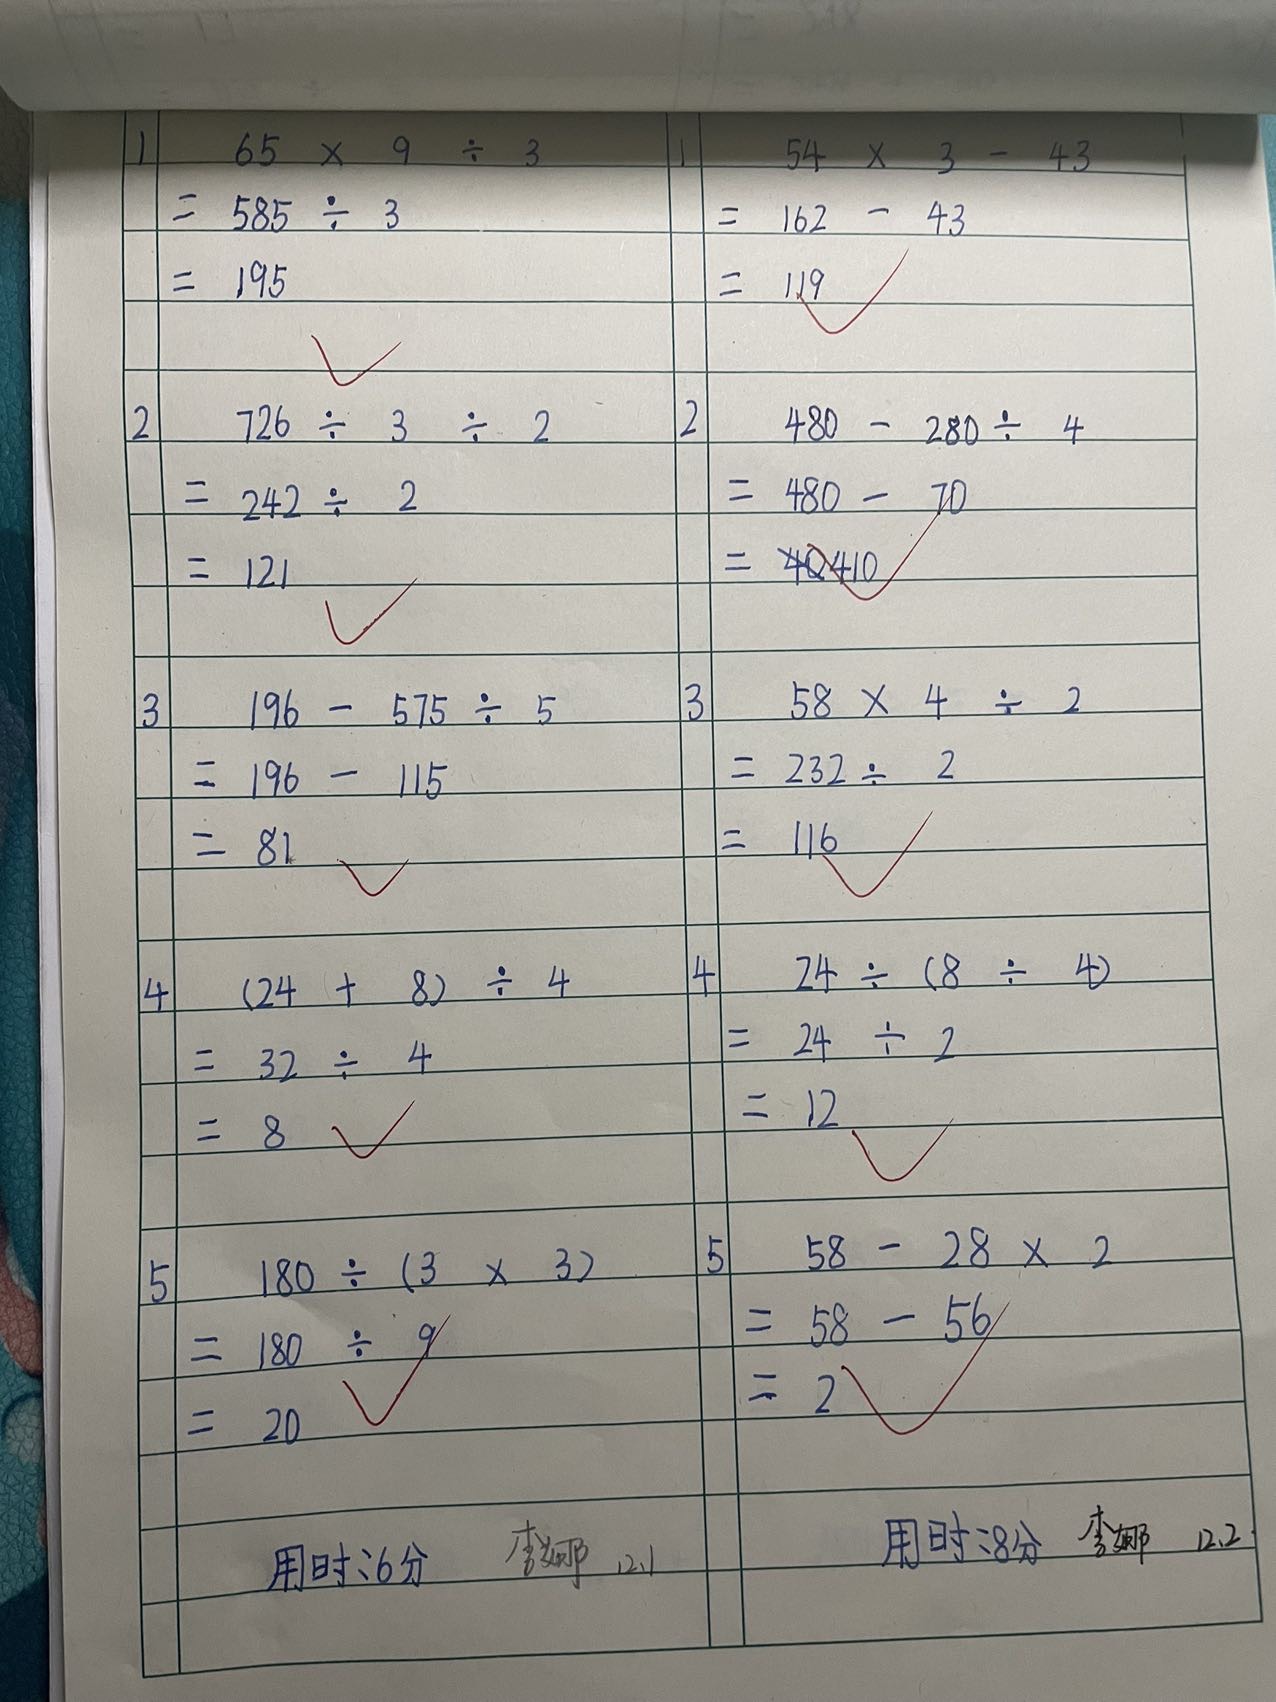 1 65 × 9 ÷ 3
= 585 ÷ 3
= 195
2 726 ÷ 3 ÷ 2
= 242 ÷ 2
= 121
3 196 - 575 ÷ 5
= 196 - 115
= 81
4 (24 + 8) ÷ 4
= 32 ÷ 4
= 8
5 180 ÷ (3 × 3)
= 180 ÷ 9
= 20
用时:6分 李娜 12.1
1 54 × 3 - 43
= 162 - 43
= 119
2 480 - 280 ÷ 4
= 480 - 70
= 410
3 58 × 4 ÷ 2
= 232 ÷ 2
= 116
4 24 ÷ (8 ÷ 4)
= 24 ÷ 2
= 12
5 58 - 28 × 2
= 58 - 56
= 2
用时:8分 李娜 12.2